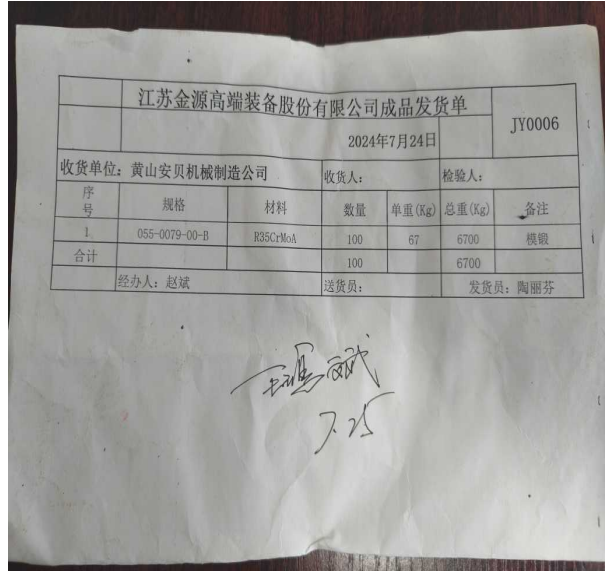 江苏金源高端装备股份有限公司成品发货单
2024年7月24日 JY0006
收货单位：黄山安贝机械制造公司 收货人： 检验人：
序号 规格 材料 数量 单重(Kg) 总重(Kg) 备注
1 055-0079-00-B R35CrMoA 100 67 6700 模锻
合计 100 6700
经办人：赵斌 送货员： 发货员：陶丽芬
7.25